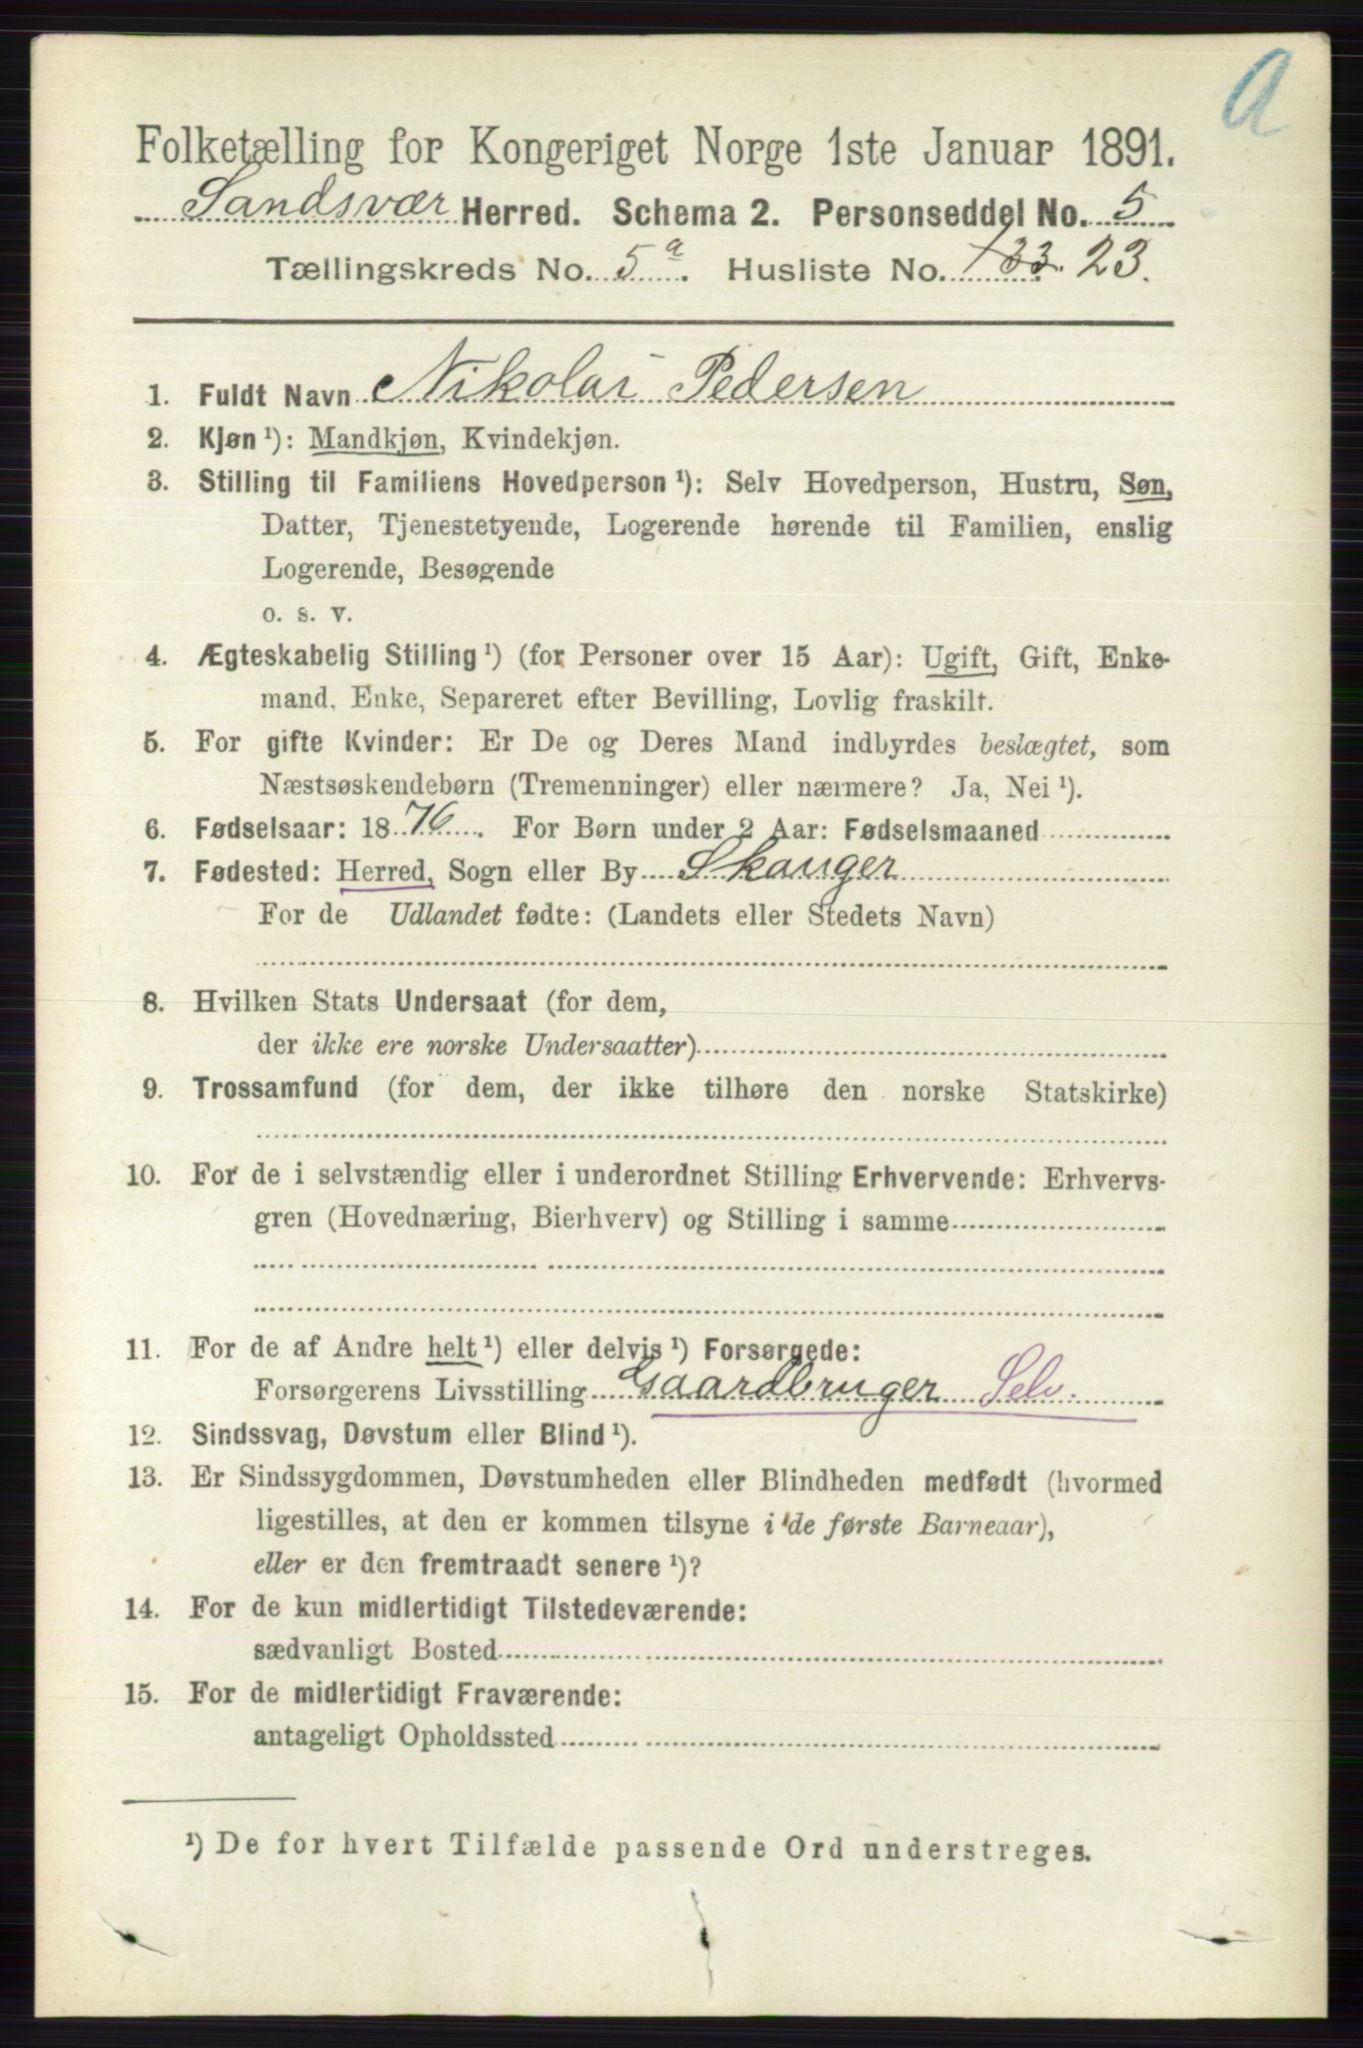 a
Folketælling for Kongeriget Norge 1ste Januar 1891.
Sandsvær Herred. Schema 2. Personseddel No. 5
Tællingskreds No. 5 a. Husliste No. 133. 23.
1. Fuldt Navn Nikolai Pedersen
2. Kjøn ¹): Mandkjøn, Kvindekjøn.
3. Stilling til Familiens Hovedperson ¹): Selv Hovedperson, Hustru, Søn,
Datter, Tjenestetyende, Logerende hørende til Familien, enslig
Logerende, Besøgende
o. s. v.
4. Ægteskabelig Stilling ¹) (for Personer over 15 Aar): Ugift, Gift, Enke-
mand, Enke, Separeret efter Bevilling, Lovlig fraskilt.
5. For gifte Kvinder: Er De og Deres Mand indbyrdes beslægtet, som
Næstsøskendebørn (Tremenninger) eller nærmere? Ja, Nei ¹).
6. Fødselsaar: 1876. For Børn under 2 Aar: Fødselsmaaned
7. Fødested: Herred, Sogn eller By Skauger
For de Udlandet fødte: (Landets eller Stedets Navn)
8. Hvilken Stats Undersaat (for dem,
der ikke ere norske Undersaatter)
9. Trossamfund (for dem, der ikke tilhøre den norske Statskirke)
10. For de i selvstændig eller i underordnet Stilling Erhvervende: Erhvervs-
gren (Hovednæring, Bierhverv) og Stilling i samme
11. For de af Andre helt ¹) eller delvis ¹) Forsørgede:
Forsørgerens Livsstilling Gaardbruger Selv.
12. Sindssvag, Døvstum eller Blind ¹).
13. Er Sindssygdommen, Døvstumheden eller Blindheden medfødt (hvormed
ligestilles, at den er kommen tilsyne i de første Barneaar),
eller er den fremtraadt senere ¹)?
14. For de kun midlertidigt Tilstedeværende:
sædvanligt Bosted
15. For de midlertidigt Fraværende:
antageligt Opholdssted
¹) De for hvert Tilfælde passende Ord understreges.